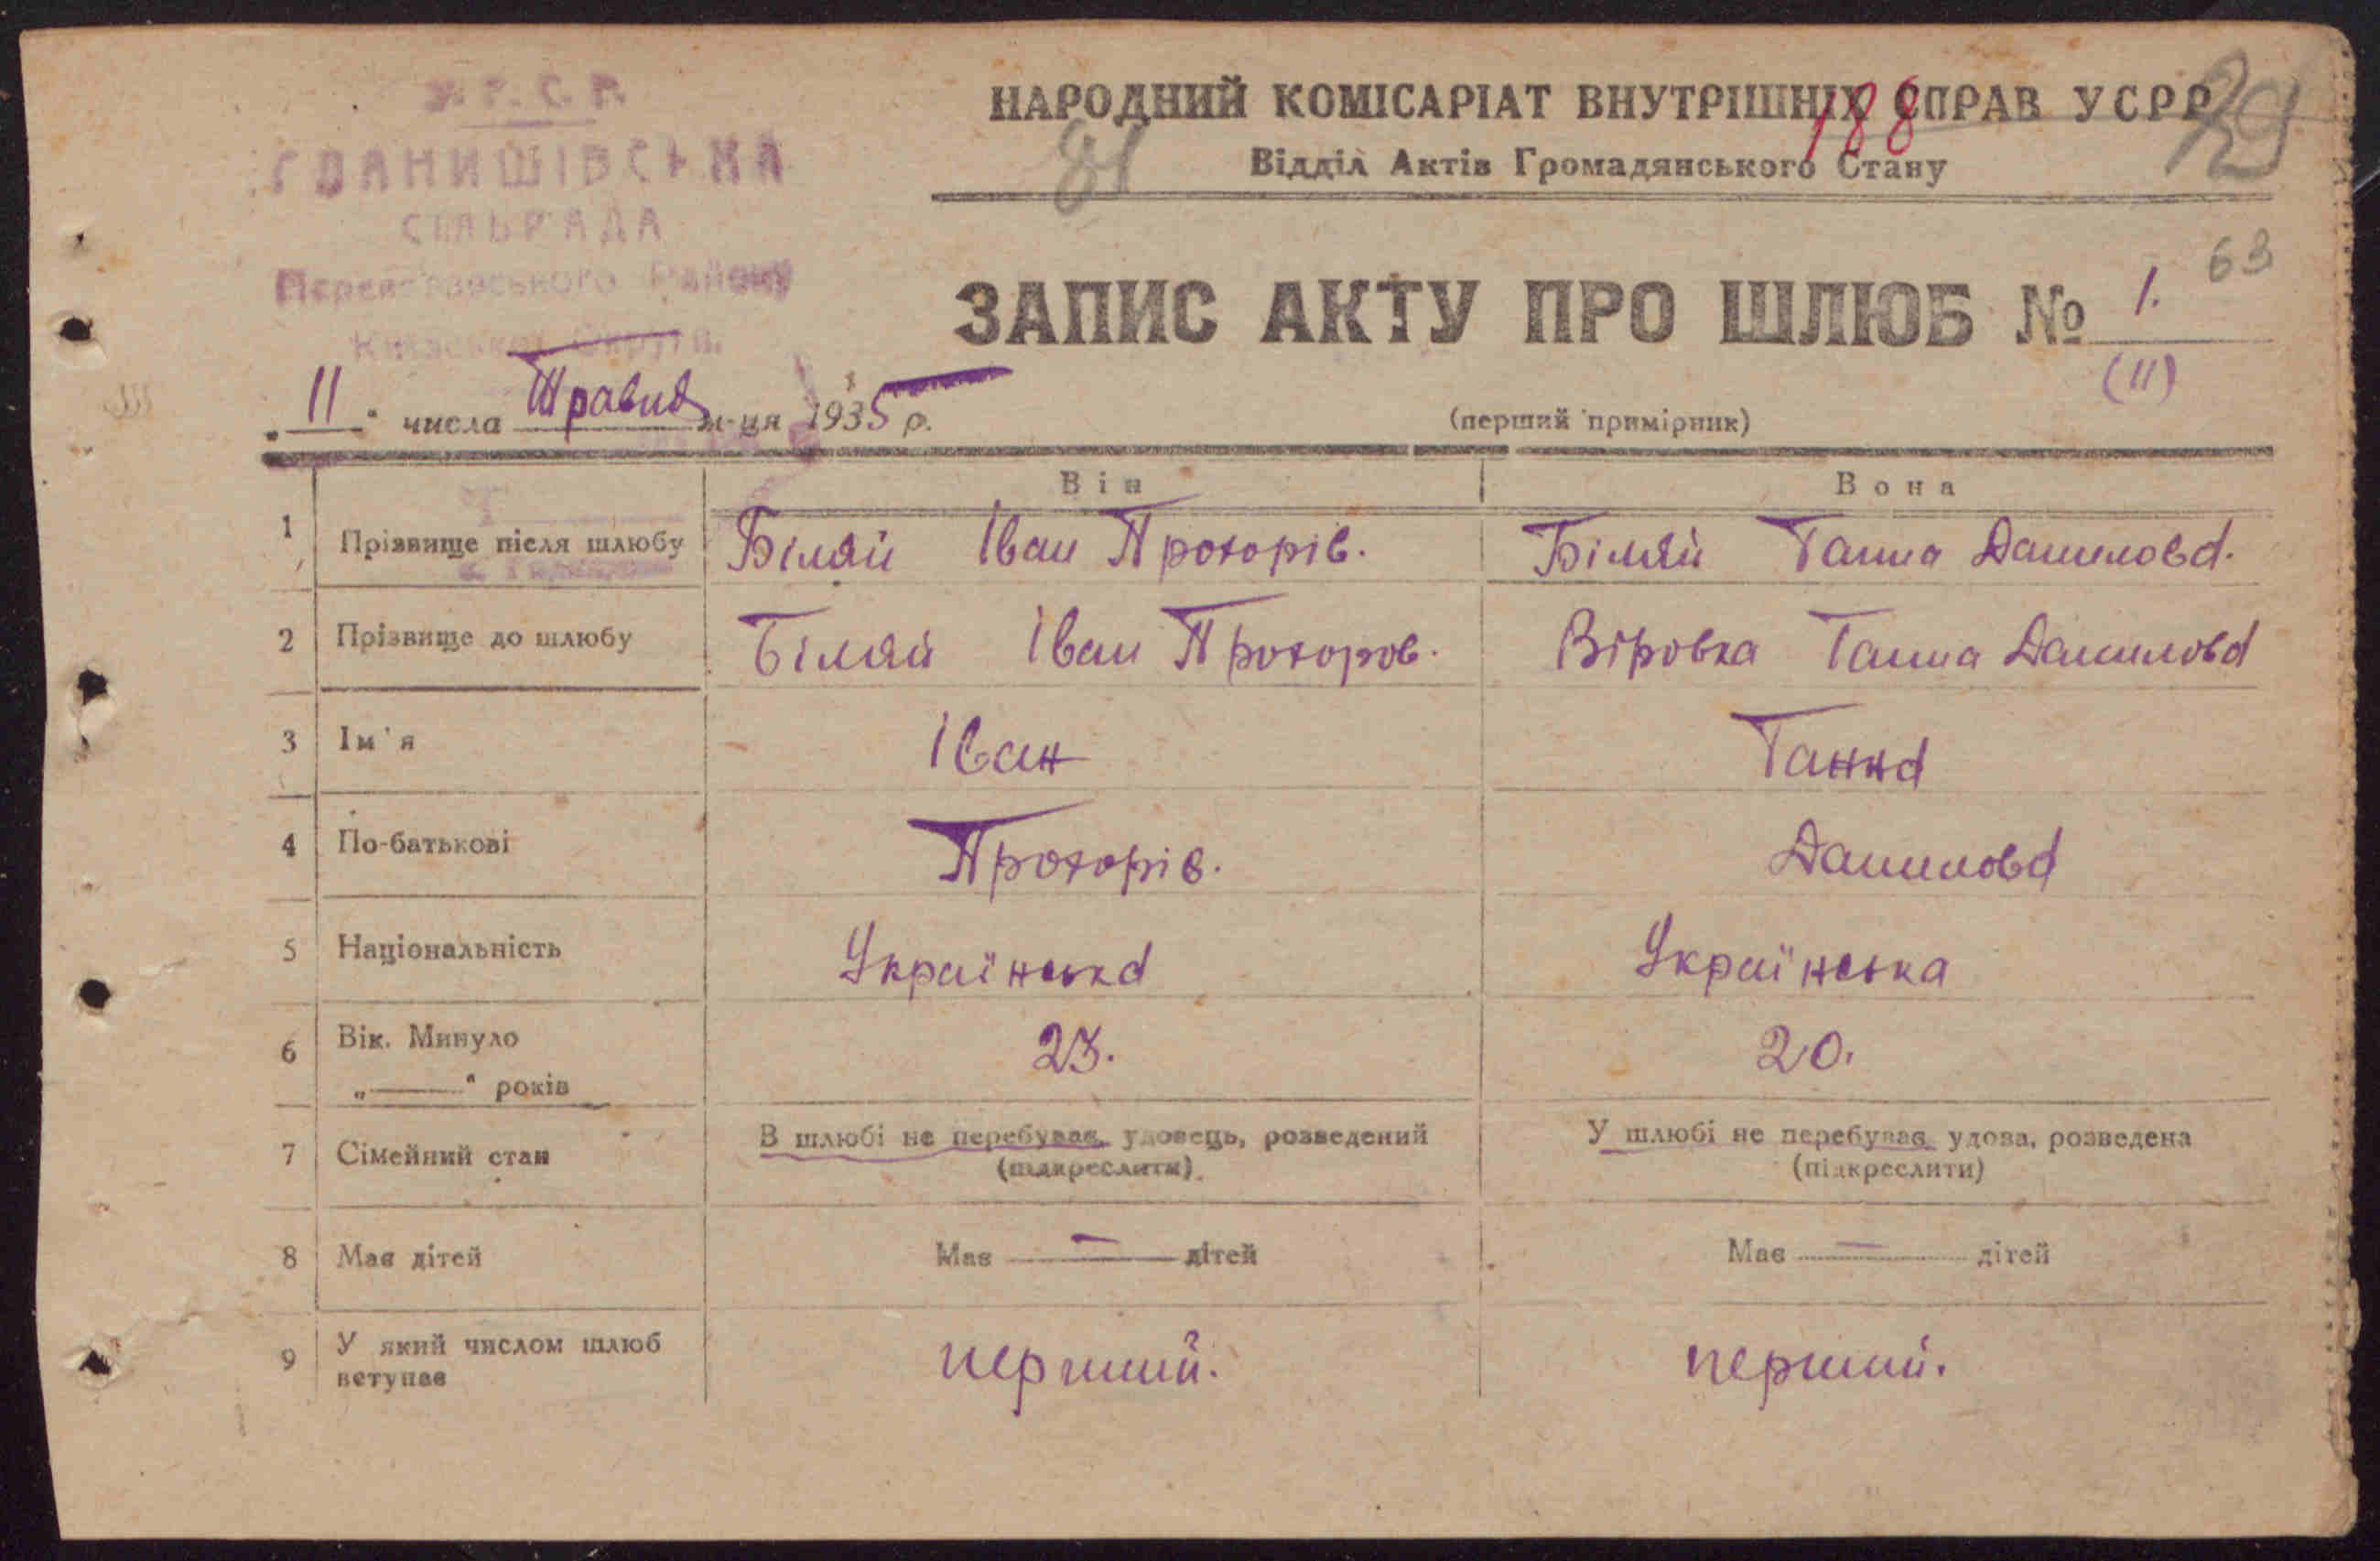 У.С.Р.Р.
СІЛЬРАДА
Переяславського Району
Київської Округи.
НАРОДНИЙ КОМІСАРІАТ ВНУТРІШНІХ СПРАВ УСРР
188
29
81
Відділ Актів Громадянського Стану
ЗАПИС АКТУ ПРО ШЛЮБ № 1.
63
(11)
„11“ числа Травня м-ця 1935 р.
(перший примірник)
Він Вона
1 Прізвище після шлюбу Біляй Іван Прохорів. Біляй Ганна Данилова.
2 Прізвище до шлюбу Біляй Іван Прохоров. Віровка Ганна Данилова
3 Ім'я Іван Ганна
4 По-батькові Прохорів. Данилова
5 Національність Українська Українська
6 Вік. Минуло 23. 20.
„———“ років
7 Сімейний стан В шлюбі не перебував, удовець, розведений У шлюбі не перебував, удова, розведена
(підкреслити) (підкреслити)
8 Має дітей Має — дітей Має — дітей
9 У який числом шлюб перший. перший.
вступає